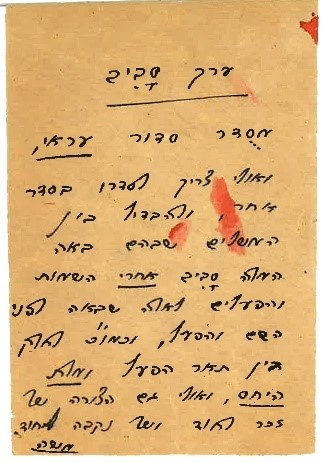 ערך סָבִיב
מסֻדר סדור עראי,
ואולי צריך לסדרו בסדר
אחר, ולהבדיל בין
המשלים שבהם באה
המלה סָבִיב אחרי השמות
והפעלים לאלה שבאה לפני
השם והפעל, וכמו״כ לחלק
בין תאר הפעל ומלת
היחס, ואולי גם הצורה של
זכר לחוד ושל נקבה לחוד
משה